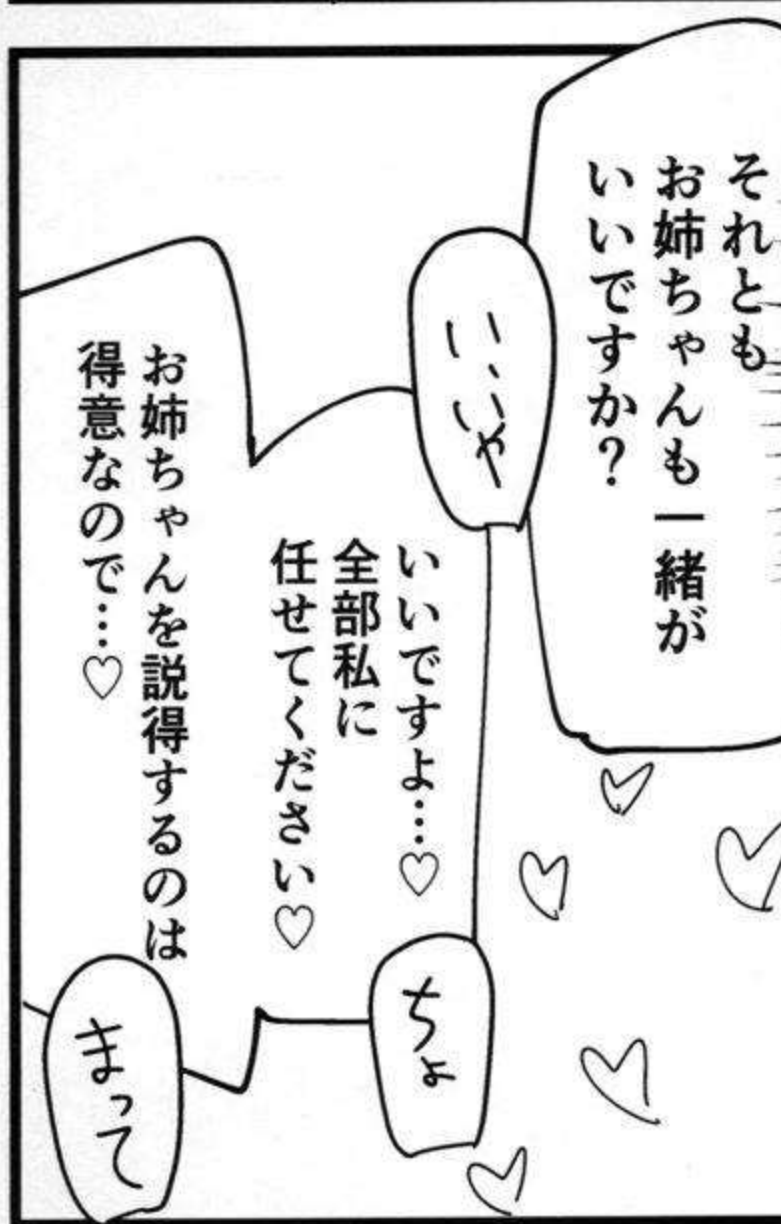 それとも
お姉ちゃんも一緒が
いいですか?
い、いや
いいですよ…♡
全部私に
任せてください♡
ちょ
お姉ちゃんを説得するのは
得意なので…♡
まって